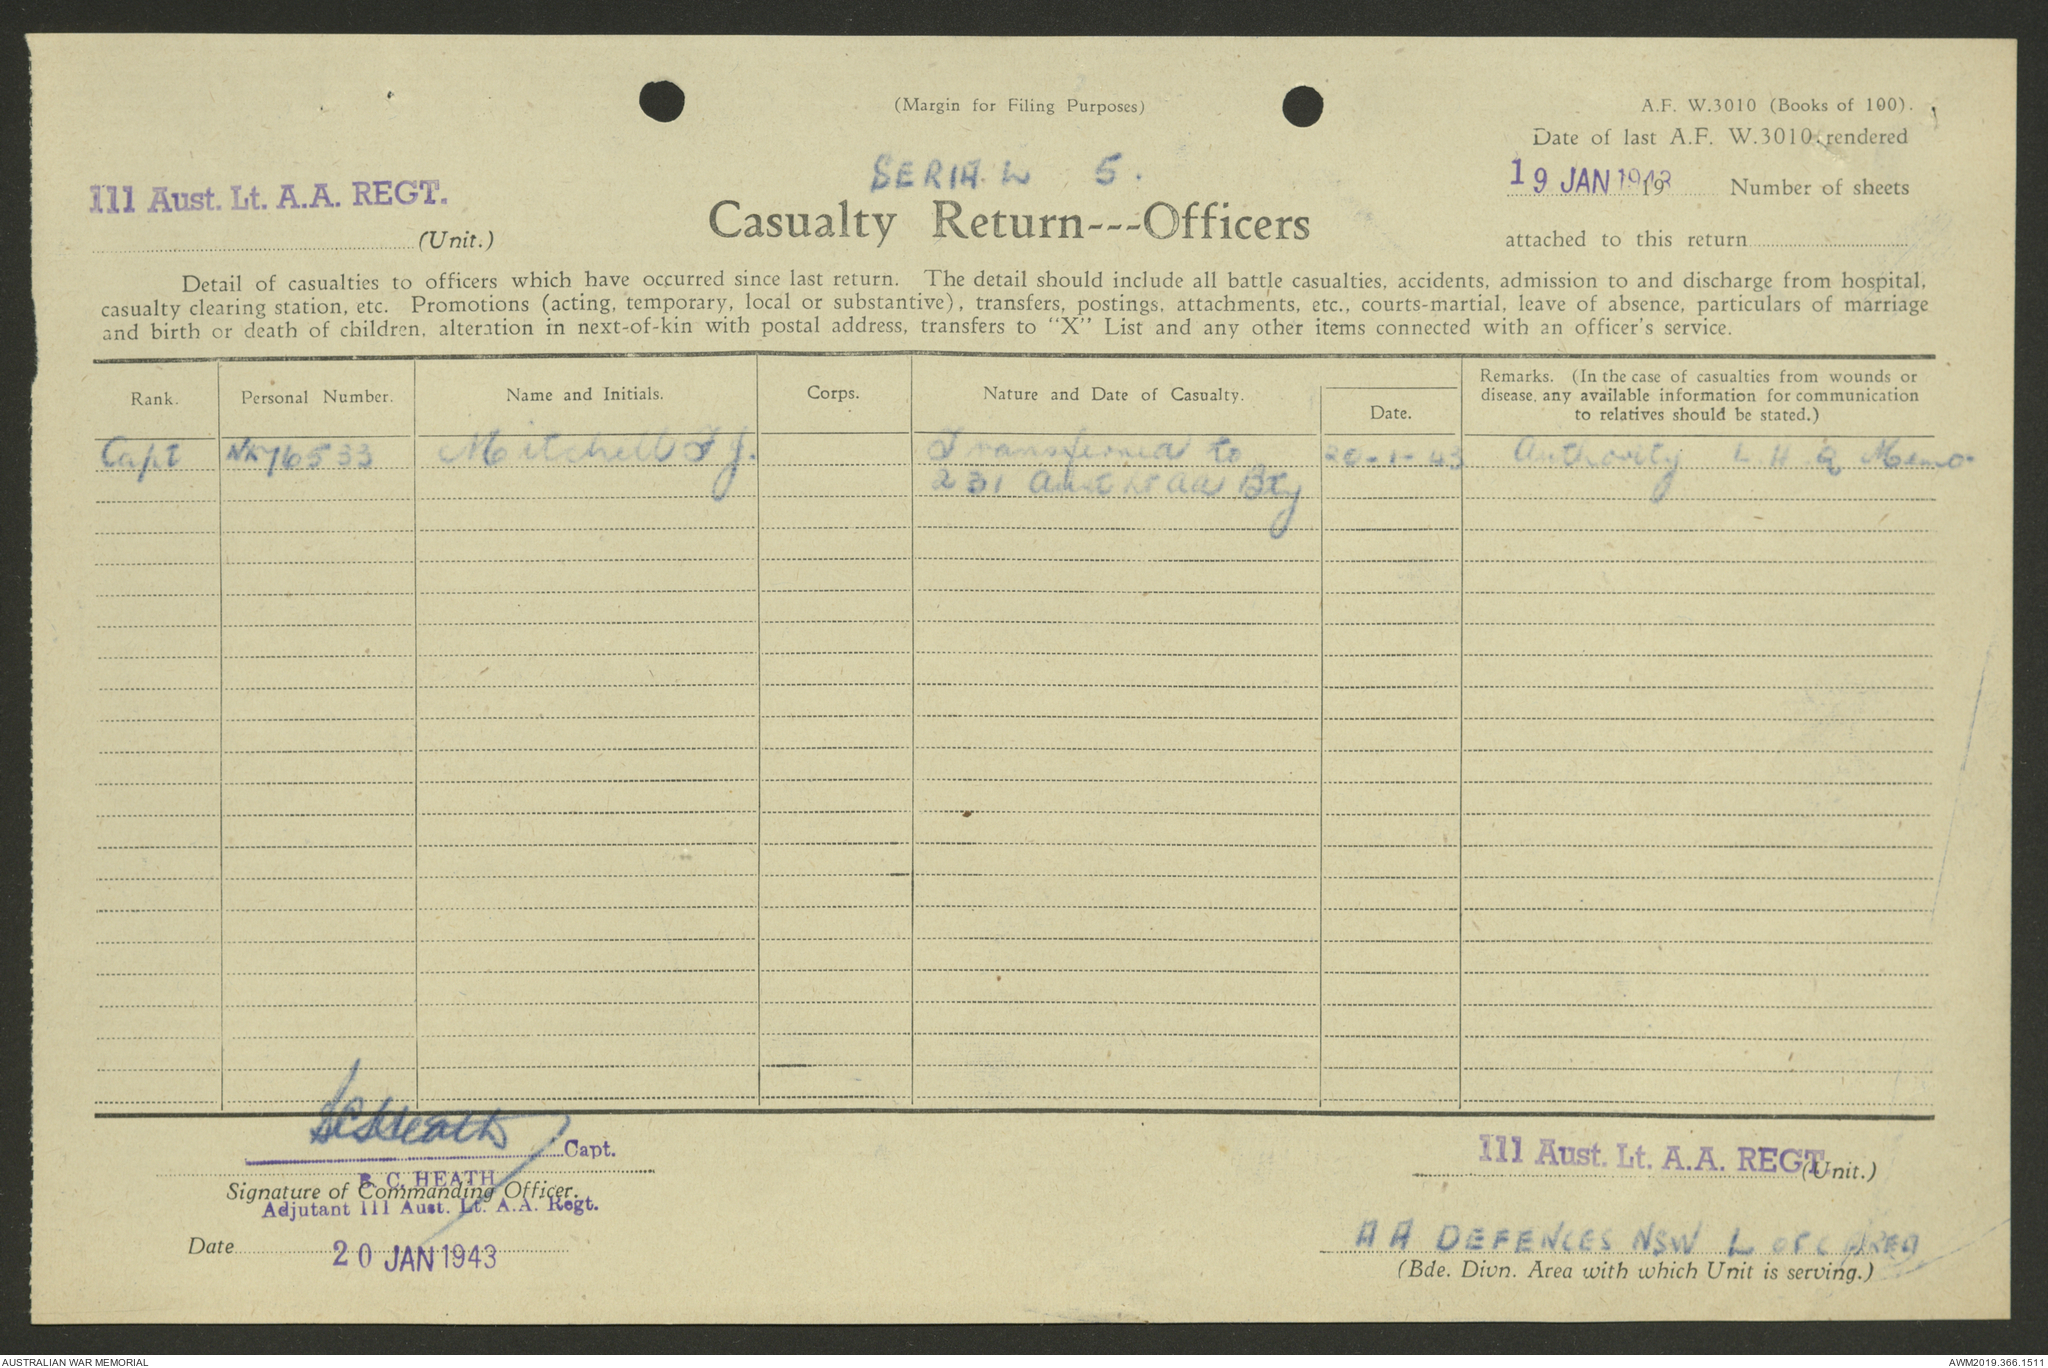 (Margin for Filing Purposes)
A.F. W.3010 (Books of 100).
Date of last A.F. W.3010 rendered
19 JAN 1943 19 Number of sheets
attached to this return
SERIAL 5.
111 Aust. Lt. A.A. REGT.
(Unit.)
Casualty Return---Officers
Detail of casualties to officers which have occurred since last return. The detail should include all battle casualties, accidents, admission to and discharge from hospital,
casualty clearing station, etc. Promotions (acting, temporary, local or substantive), transfers, postings, attachments, etc., courts-martial, leave of absence, particulars of marriage
and birth or death of children, alteration in next-of-kin with postal address, transfers to "X" List and any other items connected with an officer's service.
Rank. Personal Number. Name and Initials. Corps. Nature and Date of Casualty. Date. Remarks. (In the case of casualties from wounds or
disease, any available information for communication
to relatives should be stated.)
Capt NX76533 Mitchell F J. Transferred to 20-1-43 Authority L.H.Q Memo.
231 Aust Lt AA Bty
Capt.
B. C. HEATH
Signature of Commanding Officer.
Adjutant 111 Aust. Lt. A.A. Regt.
Date 20 JAN 1943
111 Aust. Lt. A.A. REGT. (Unit.)
A A DEFENCES NSW L OF C AREA
(Bde. Divn. Area with which Unit is serving.)
AUSTRALIAN WAR MEMORIAL
AWM2019.366.1511